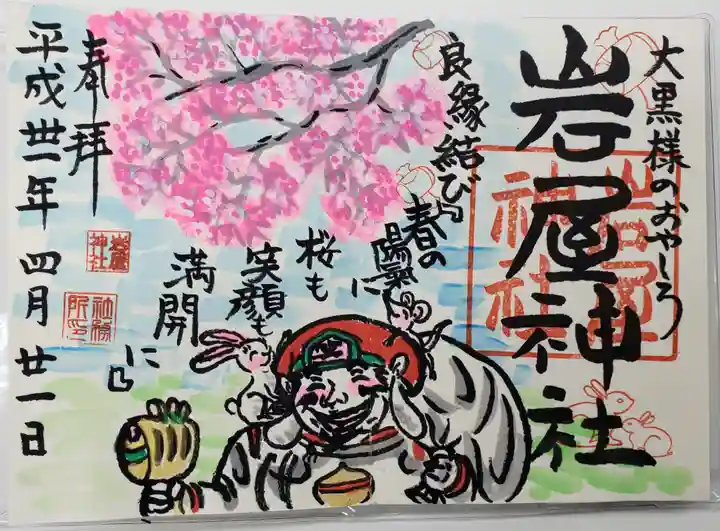 大黒様のおやしろ
岩屋神社
岩屋神社
良縁結び
『春の
陽氣に
桜も
笑顔も
満開
に』
奉拝
平成卅一年四月廿一日
岩屋神社